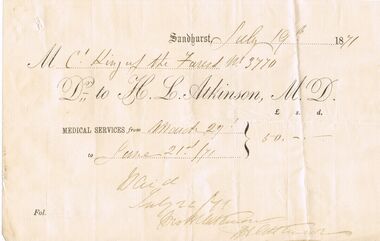 Sandhurst, July 19th 1871
M Ct King of the Forest No 3770
Dr. to H. L. Atkinson, M. D.
£ s. d.
MEDICAL SERVICES from March 29th
to June 21st/71 } 50. - -
Paid
July 22/71
Fol. HLAtkinson